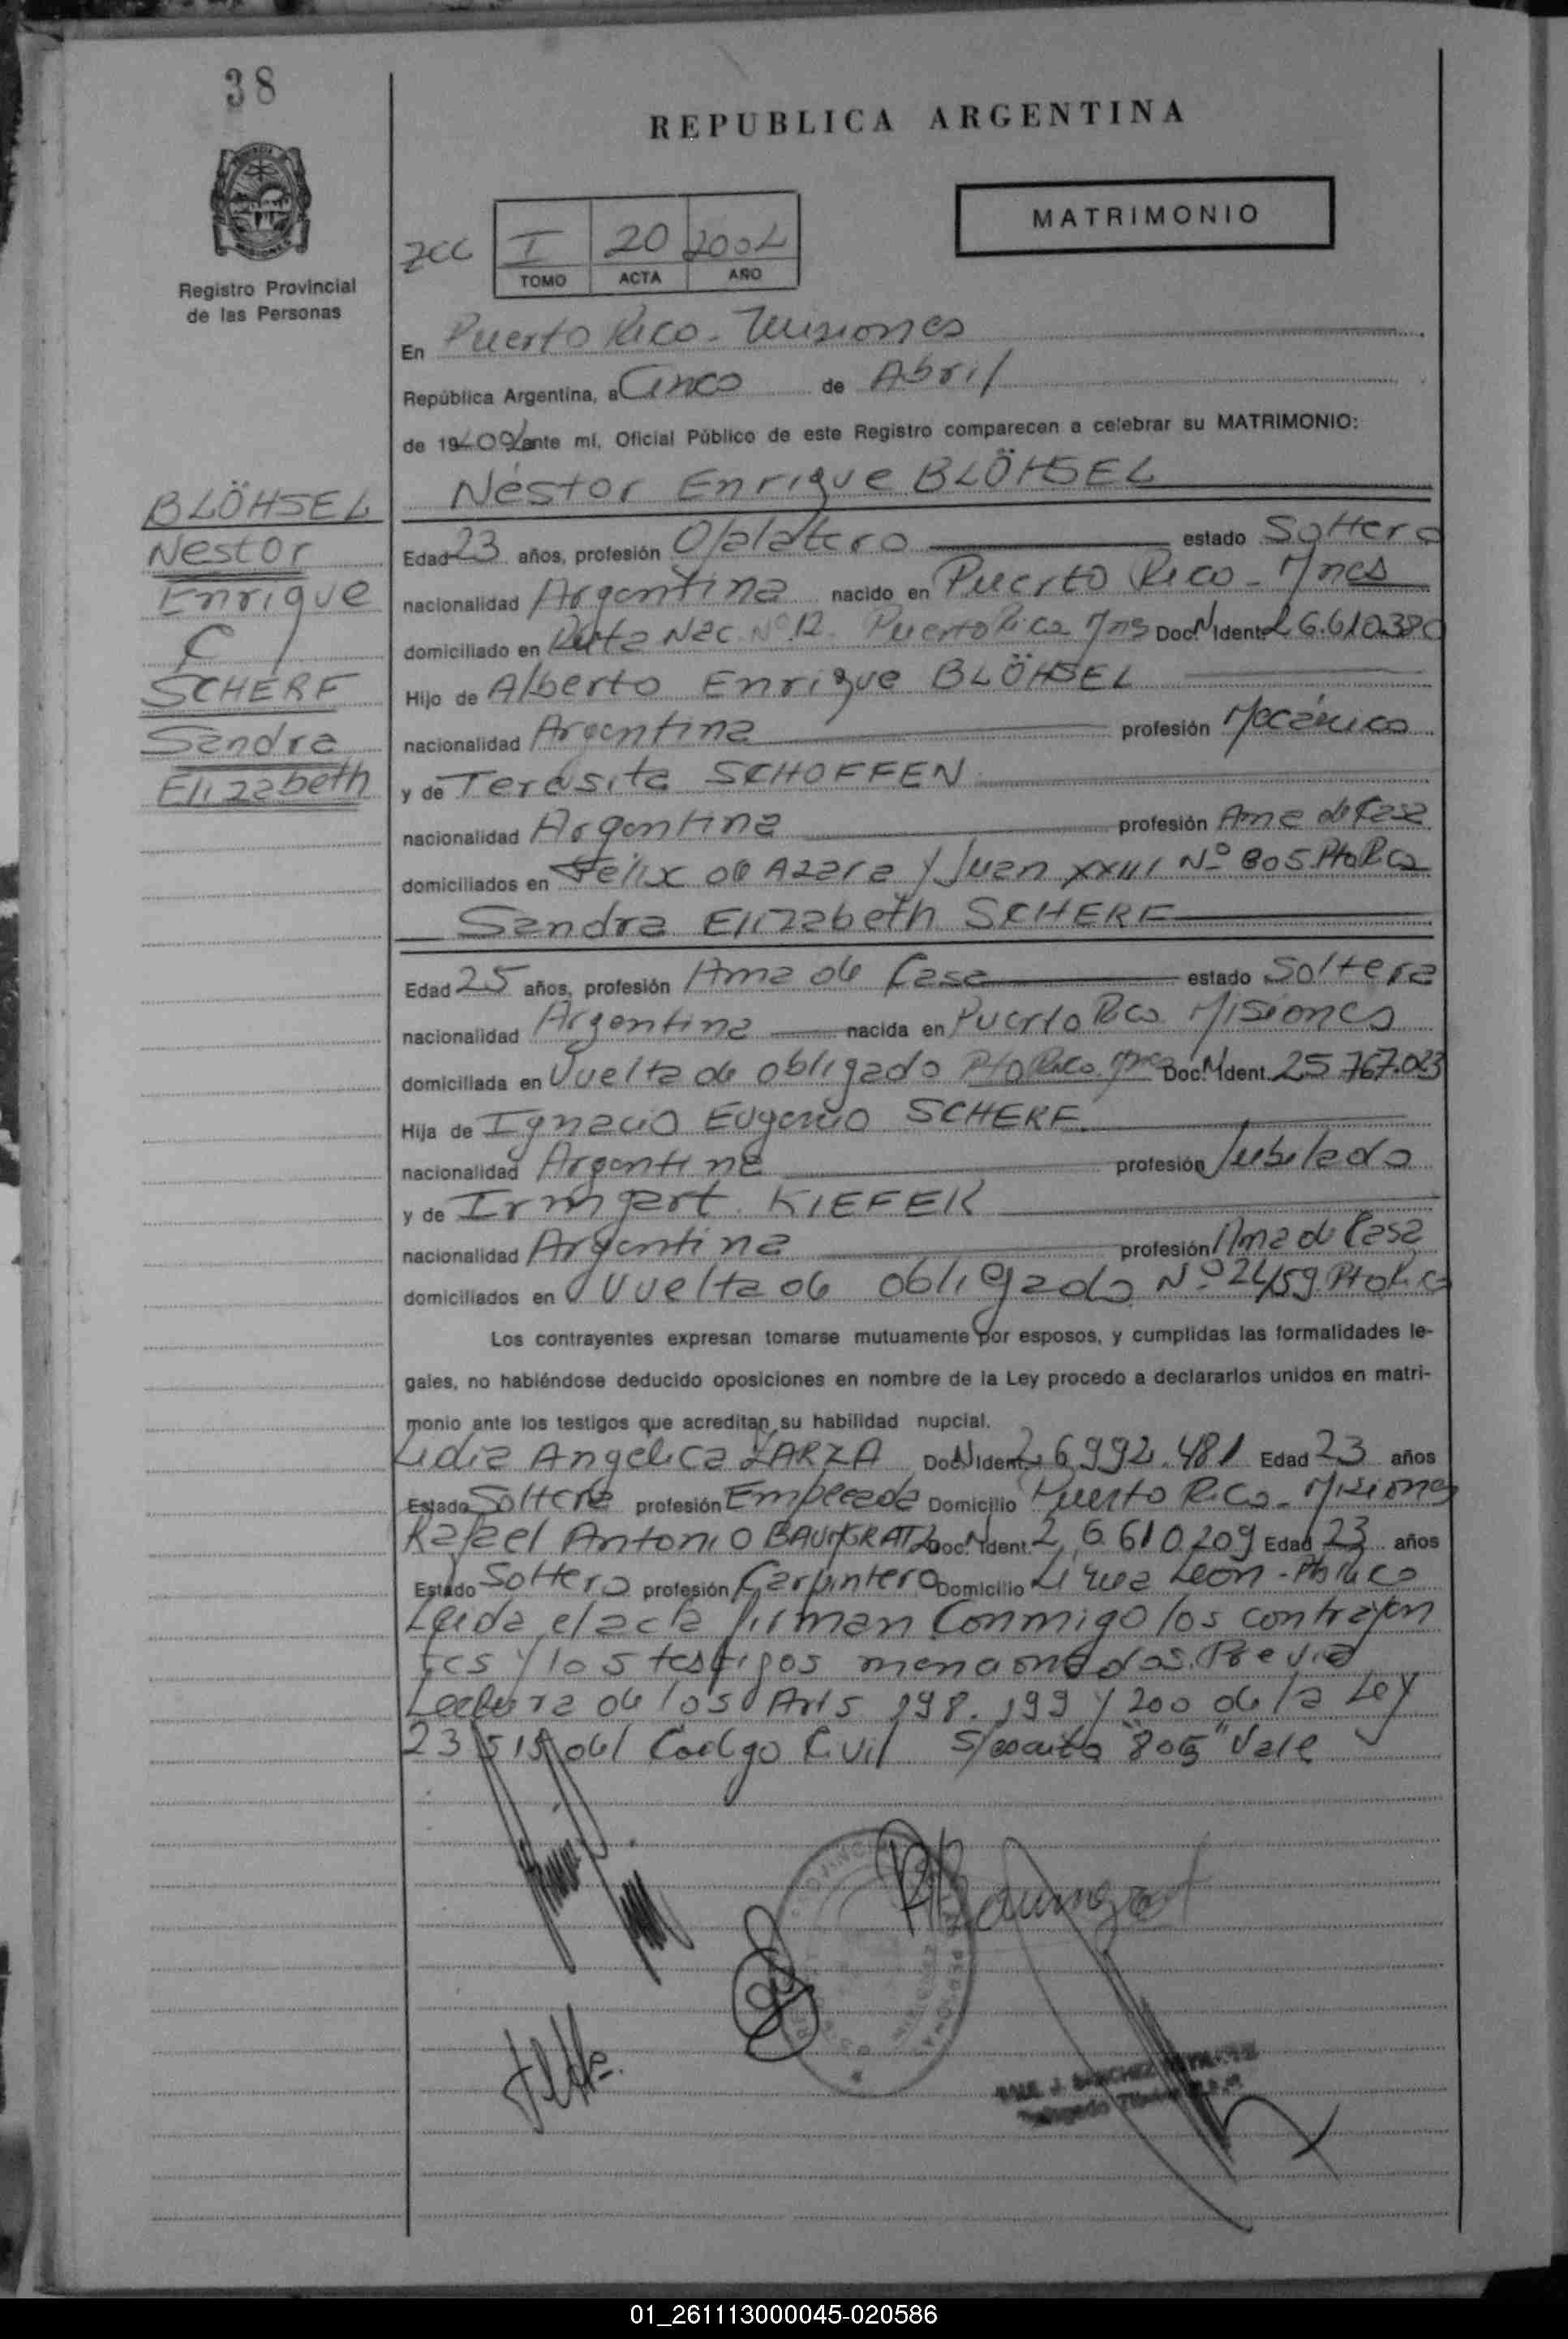 38
REPUBLICA ARGENTINA
MATRIMONIO
Registro Provincial
de las Personas
I 20 2002
TOMO ACTA AÑO
En Puerto Rico - Misiones
República Argentina, a Cinco de Abril
de 19 ante mí, Oficial Público de este Registro comparecen a celebrar su MATRIMONIO:
BLÖHSEL
Nestor
Enrique
C/
SCHERF
Sandra
Elizabeth
Néstor Enrique BLÖHSEL
Edad 23 años, profesión Ojalatero estado Soltero
nacionalidad Argentina nacido en Puerto Rico - Mnes
domiciliado en Ruta Nac. Nº 12. Puerto Rico Mns Doc. N Ident. 26.610.380
Hijo de Alberto Enrique BLÖHSEL
nacionalidad Argentina profesión Mecánico
y de Teresita SCHOFFEN
nacionalidad Argentina profesión Ama de Casa
domiciliados en Félix de Azara y Juan XXIII Nº 805 Pto Rico
Sandra Elizabeth SCHERF
Edad 25 años, profesión Ama de Casa estado Soltera
nacionalidad Argentina nacida en Puerto Rico Misiones
domiciliada en Vuelta de obligado Pto Rico. Mnes Doc. N Ident. 25.767.023
Hija de Ignacio Eugenio SCHERF
nacionalidad Argentina profesión Jubilado
y de Irmgart KIEFER
nacionalidad Argentina profesión Ama de Casa
domiciliados en Vuelta de obligado Nº 2459 Pto Rico
Los contrayentes expresan tomarse mutuamente por esposos, y cumplidas las formalidades le-
gales, no habiéndose deducido oposiciones en nombre de la Ley procedo a declararlos unidos en matri-
monio ante los testigos que acreditan su habilidad nupcial.
Lidia Angélica ZARZA Doc. N Ident. 26,992.481 Edad 23 años
Estado Soltera profesión Empleada Domicilio Puerto Rico - Misiones
Rafael Antonio BAUMGRATZ Doc. N Ident. 26.610.209 Edad 23 años
Estado Soltero profesión Carpintero Domicilio Línea León - Pto Rico
Leída el acta firman conmigo los contrayen
tes y los testigos mencionados. Previa
Lectura de los Arts 198. 199 y 200 de la Ley
23.515 del Codigo Civil S/escrito "805" Vale
01_261113000045-020586